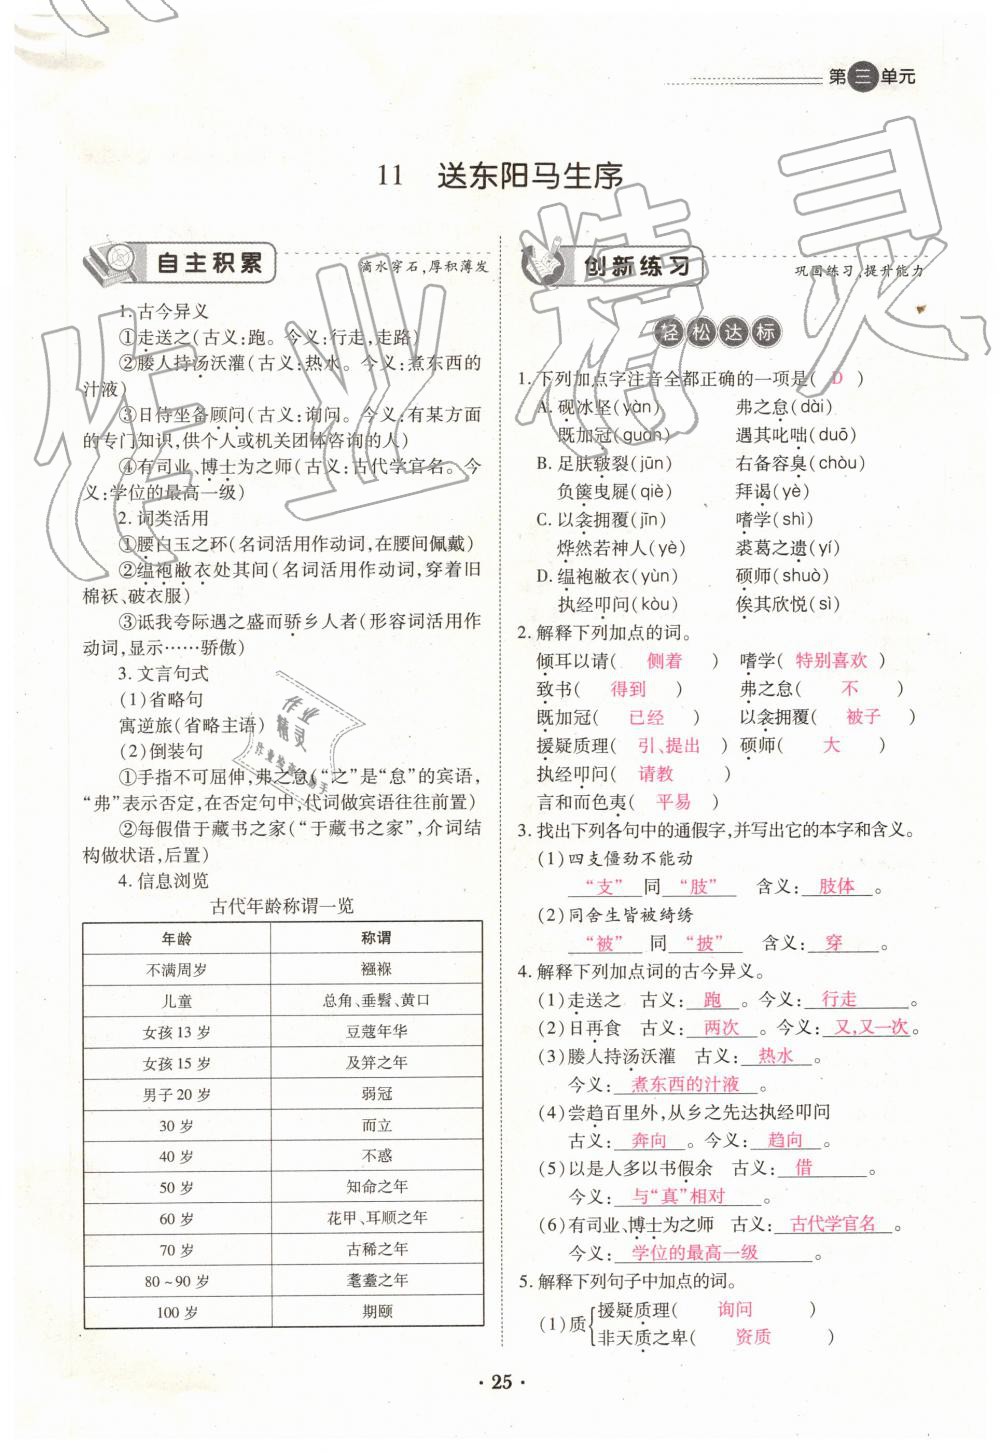 第三单元
11 送东阳马生序
自主积累
滴水穿石,厚积薄发
1. 古今异义
①走送之(古义:跑。今义:行走,走路)
②媵人持汤沃灌(古义:热水。今义:煮东西的
汁液)
③日侍坐备顾问(古义:询问。今义:有某方面
的专门知识,供个人或机关团体咨询的人)
④有司业、博士为之师(古义:古代学官名。今
义:学位的最高一级)
2. 词类活用
①腰白玉之环(名词活用作动词,在腰间佩戴)
②缊袍敝衣处其间(名词活用作动词,穿着旧
棉袄、破衣服)
③诋我夸际遇之盛而骄乡人者(形容词活用作
动词,显示……骄傲)
3. 文言句式
(1)省略句
寓逆旅(省略主语)
(2)倒装句
①手指不可屈伸,弗之怠(“之”是“怠”的宾语,
“弗”表示否定,在否定句中,代词做宾语往往前置)
②每假借于藏书之家(“于藏书之家”,介词结
构做状语,后置)
4. 信息浏览
古代年龄称谓一览
年龄 称谓
不满周岁 襁褓
儿童 总角、垂髫、黄口
女孩 13 岁 豆蔻年华
女孩 15 岁 及笄之年
男子 20 岁 弱冠
30 岁 而立
40 岁 不惑
50 岁 知命之年
60 岁 花甲、耳顺之年
70 岁 古稀之年
80～90 岁 耄耋之年
100 岁 期颐
创新练习
巩固练习,提升能力
轻松达标
1. 下列加点字注音全都正确的一项是( D )
A. 砚冰坚(yàn) 弗之怠(dài)
既加冠(guān) 遇其叱咄(duō)
B. 足肤皲裂(jūn) 右备容臭(chòu)
负箧曳屣(qiè) 拜谒(yè)
C. 以衾拥覆(jīn) 嗜学(shì)
烨然若神人(yè) 裘葛之遗(yí)
D. 缊袍敝衣(yùn) 硕师(shuò)
执经叩问(kòu) 俟其欣悦(sì)
2. 解释下列加点的词。
倾耳以请( 侧着 ) 嗜学( 特别喜欢 )
致书( 得到 ) 弗之怠( 不 )
既加冠( 已经 ) 以衾拥覆( 被子 )
援疑质理( 引、提出 ) 硕师( 大 )
执经叩问( 请教 )
言和而色夷( 平易 )
3. 找出下列各句中的通假字,并写出它的本字和含义。
(1)四支僵劲不能动
“支” 同 “肢” 含义: 肢体 。
(2)同舍生皆被绮绣
“被” 同 “披” 含义: 穿 。
4. 解释下列加点词的古今异义。
(1)走送之 古义: 跑 。今义: 行走 。
(2)日再食 古义: 两次 。今义: 又,又一次。
(3)媵人持汤沃灌 古义: 热水 。
今义: 煮东西的汁液 。
(4)尝趋百里外,从乡之先达执经叩问
古义: 奔向 。今义: 趋向 。
(5)以是人多以书假余 古义: 借 。
今义: 与“真”相对 。
(6)有司业、博士为之师 古义: 古代学官名 。
今义: 学位的最高一级 。
5. 解释下列句子中加点的词。
(1)质
援疑质理( 询问 )
非天质之卑( 资质 )
· 25 ·
作业精灵
作业
精灵